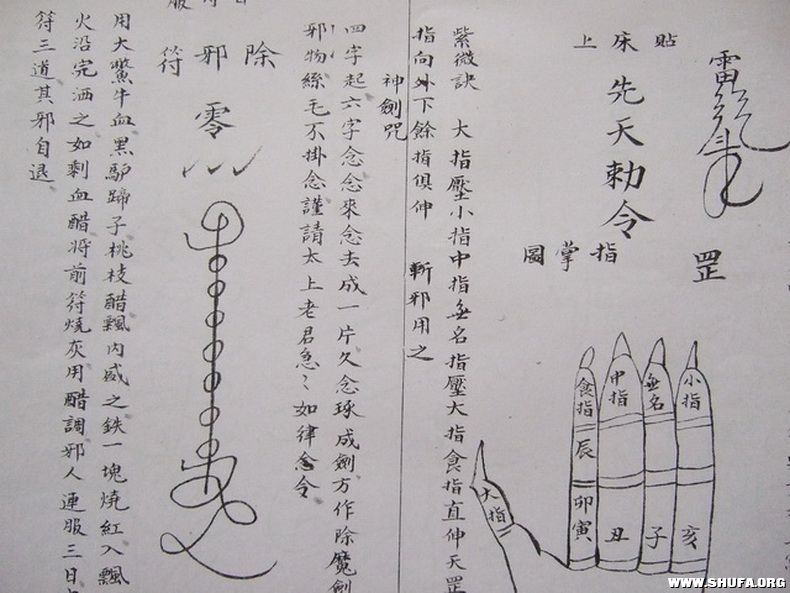 雷
罡
貼床上
先天勅令
指掌圖
小指
無名
中指
食指
大指
辰
卯
寅
丑
子
亥
紫微訣 大指壓小指中指無名指壓大指食指直伸天罡
指向外下餘指俱伸 斬邪用之
神劍咒
四字起六字念念來念去成一片久念琢成劍方作除魔劍
邪物絲毛不掛念謹請太上老君急〻如律念令
服
除邪符
零
用大鱉牛血黑驴蹄子桃枝醋飄內威之鉄一塊燒紅入飄
火沿完洒之如剩血醋將前符燒灰用醋調邪人連服三日
符三道其邪自退
WWW.SHUFA.ORG